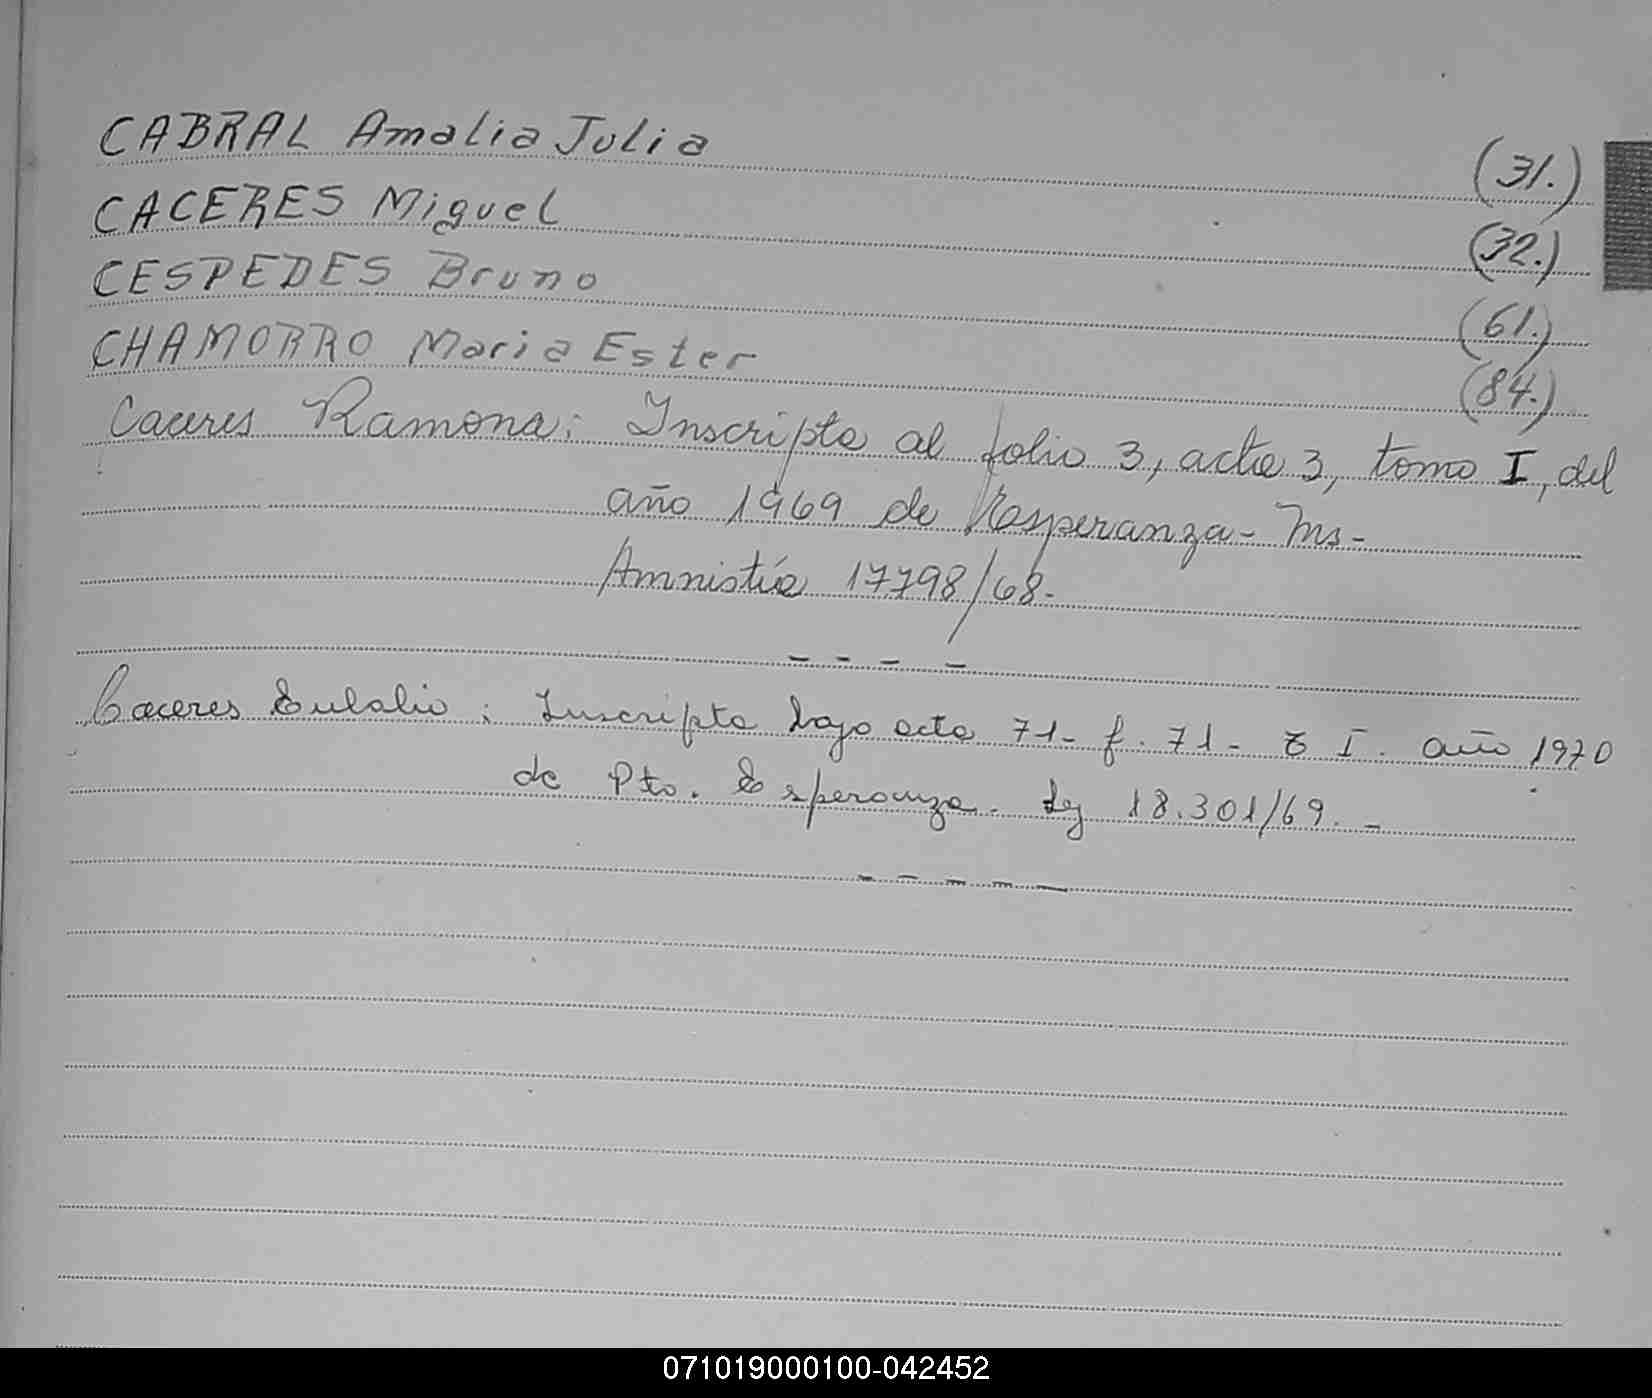 CABRAL Amalia Julia (31.)
CACERES Miguel (32.)
CESPEDES Bruno (61.)
CHAMORRO Maria Ester (84.)
Caceres Ramona: Inscripta al folio 3, acta 3, tomo I, del
año 1969 de Esperanza - Ms -
Amnistía 17798/68.
Caceres Eulalio: Inscripta bajo acta 71 - f. 71 - T I. año 1970
de Pto. Esperanza. Ley 18.301/69. -
071019000100-042452